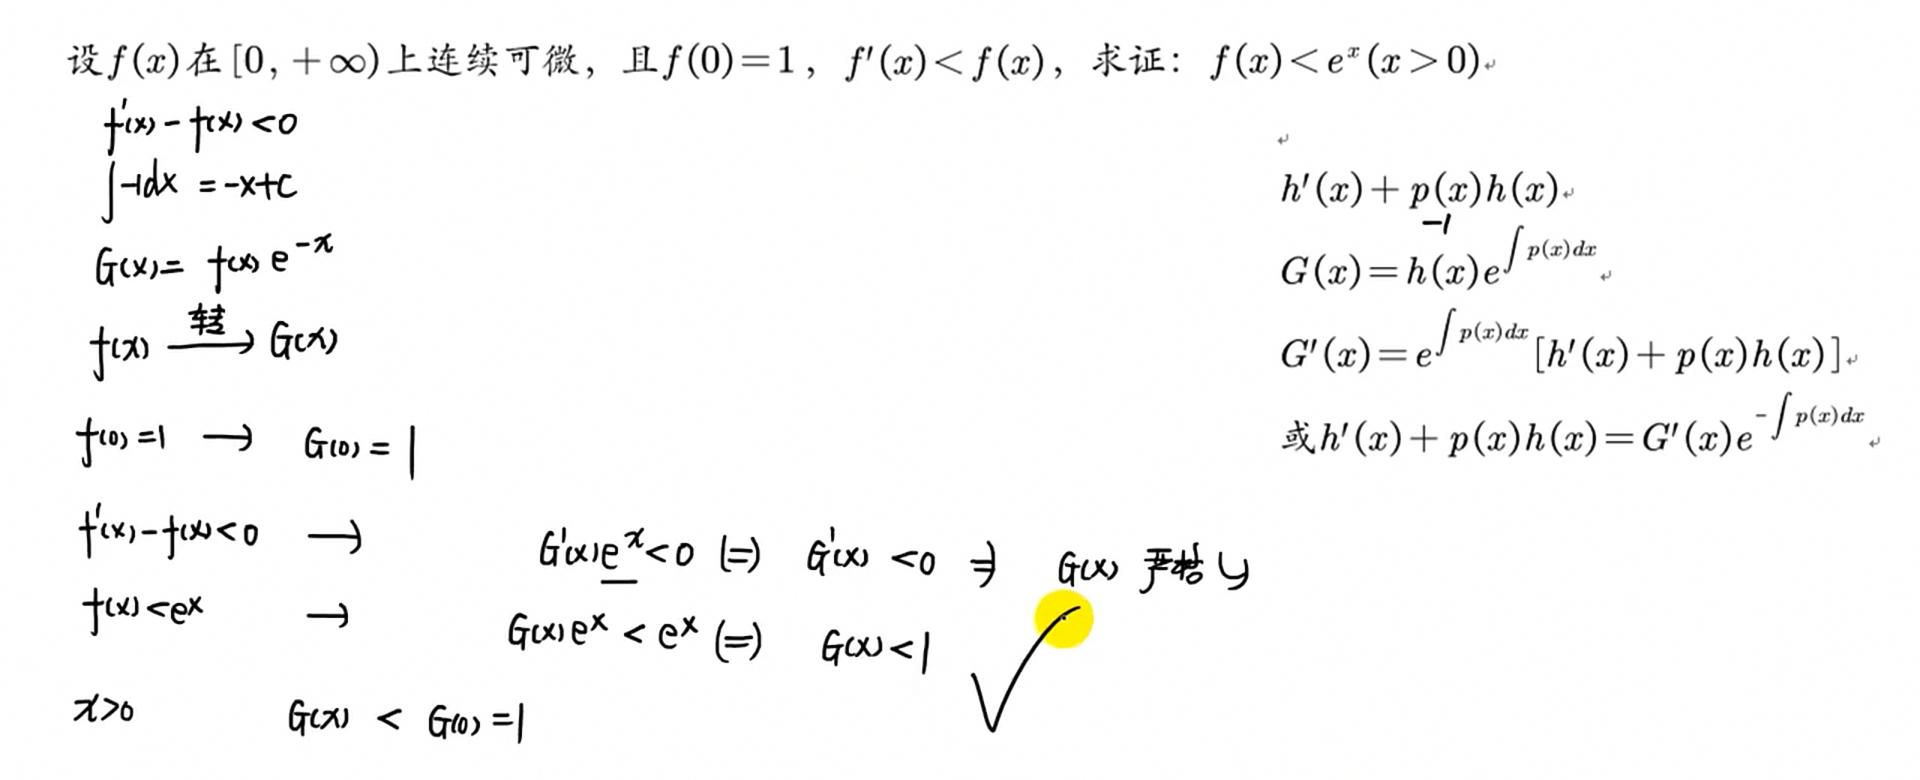 设f(x)在[0, +∞)上连续可微, 且f(0)=1, f'(x)<f(x), 求证: f(x)<e^x(x>0)
f'(x)-f(x)<0
∫-1dx =-x+C
G(x)= f(x)e^{-x}
f(x) —转→ G(x)
f(0)=1 → G(0)=1
f'(x)-f(x)<0 → G'(x)e^x<0 (=) G'(x)<0 ⇒ G(x) 严格↘
f(x)<e^x → G(x)e^x<e^x (=) G(x)<1 √
x>0 G(x) < G(0)=1
h'(x)+p(x)h(x)
-1
G(x)=h(x)e^{∫p(x)dx}
G'(x)=e^{∫p(x)dx}[h'(x)+p(x)h(x)]
或h'(x)+p(x)h(x)=G'(x)e^{-∫p(x)dx}